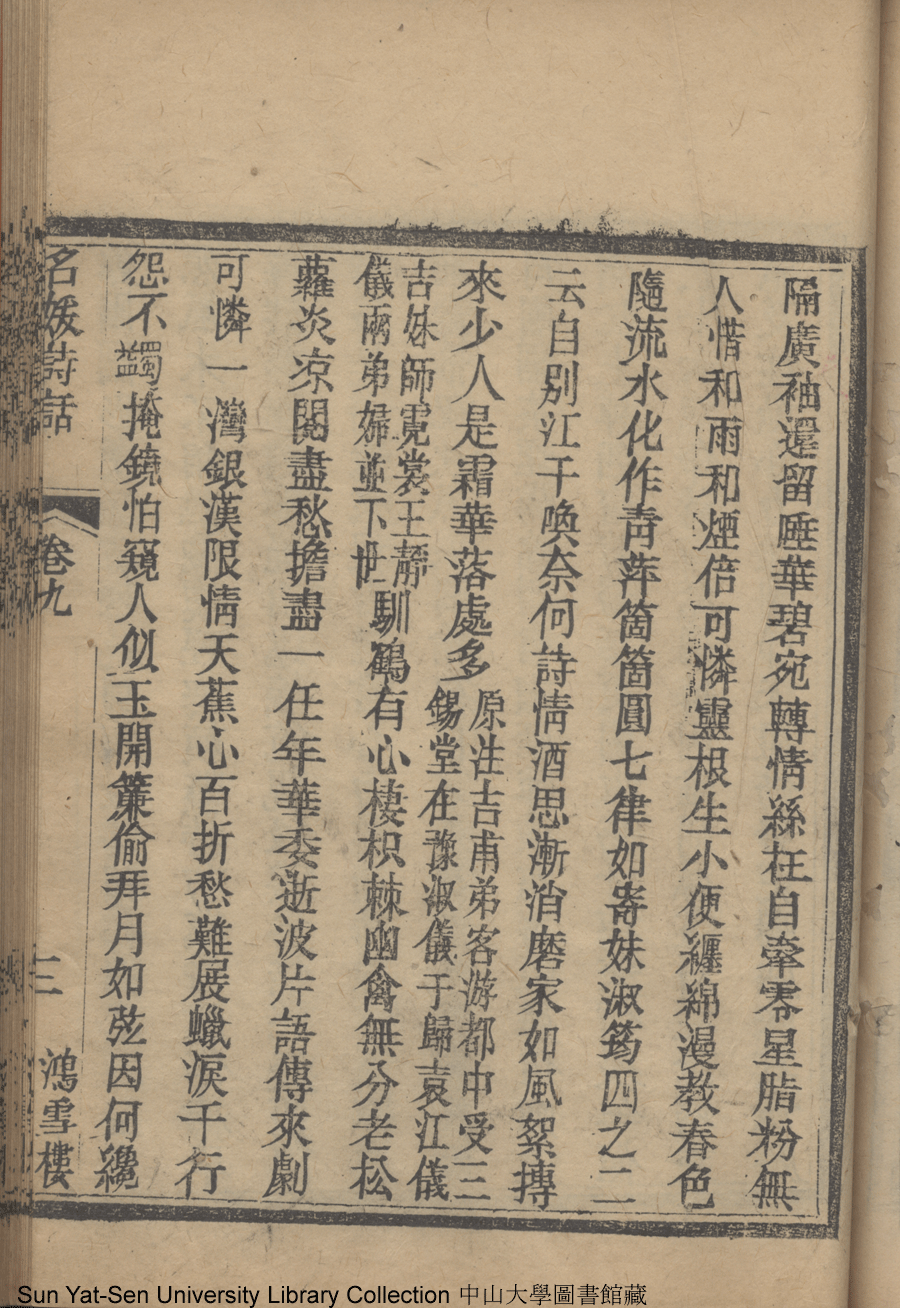 隔廣袖還留唾華碧宛轉情絲枉自牽零星脂粉無
人惜和雨和煙倍可憐靈根生小便纏綿漫教春色
隨流水化作青萍箇箇圓七律如寄妹淑筠四之二
云自別江干喚奈何詩情酒思漸消磨家如風絮摶
來少人是霜華落處多
原注吉甫弟客游都中受三
錫堂在豫淑儀于歸袁江儀
吉妹師霓裳王靜
儀兩弟婦並下世
馴鶴有心棲枳棘幽禽無分老松
蘿炎凉閱盡愁擔盡一任年華委逝波片語傳來劇
可憐一灣銀漢限情天蕉心百折愁難展蠟淚千行
怨不蠲掩鏡怕窺人似玉開簾偷拜月如弦因何纔
名媛詩話 卷九 三 鴻雪樓
Sun Yat-Sen University Library Collection 中山大學圖書館藏